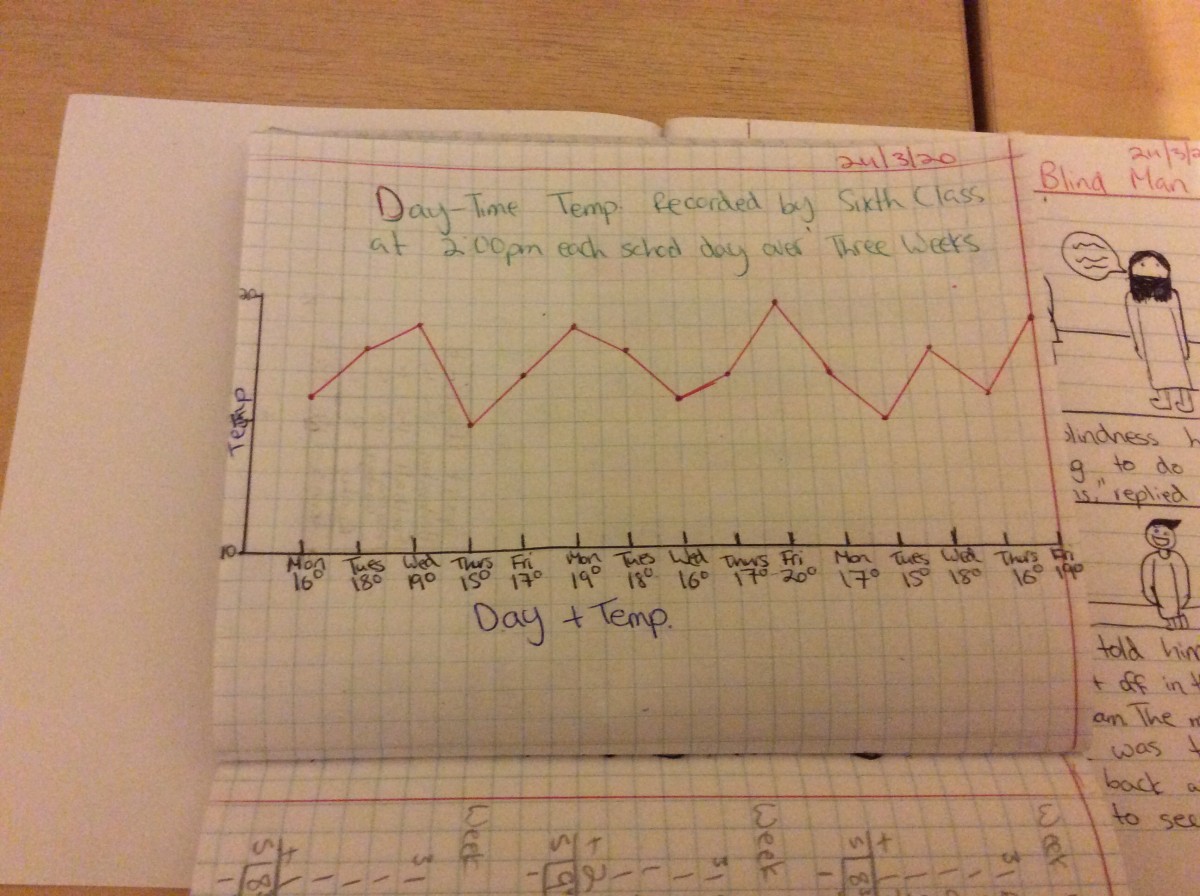 24/3/20
Day-Time Temp. Recorded by Sixth Class
at 2:00pm each school day over Three Weeks
20
Temp
10
Mon Tues Wed Thurs Fri Mon Tues Wed Thurs Fri Mon Tues Wed Thurs Fri
16° 18° 19° 15° 17° 19° 18° 16° 17° 20° 17° 15° 18° 16° 19°
Day + Temp.
24/3/2
Blind Man
blindness h
g to do
is," replied
told him
t off in t
am. The m
was t
back a
to see
Week
Week
Week